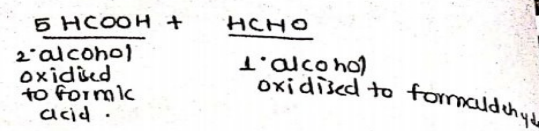 5 HCOOH + HCHO
2° alcohol
oxidised
to formic
acid.
1° alcohol
oxidised to formaldehyde